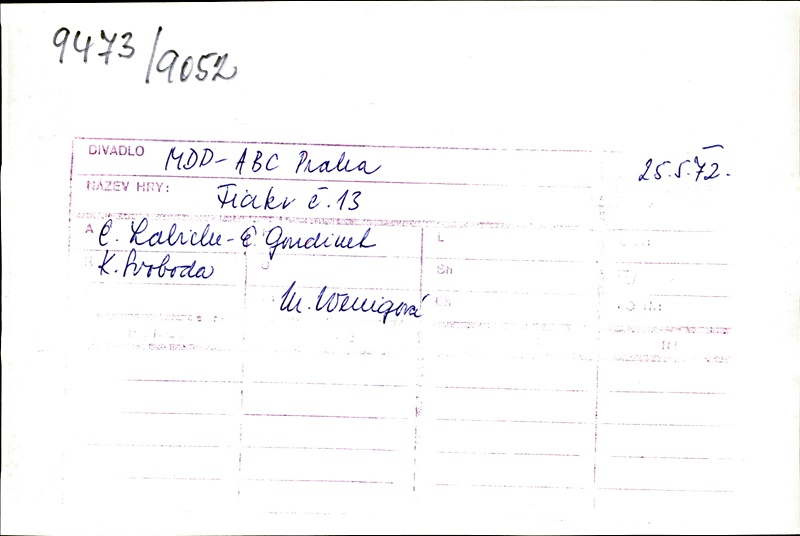 9473/9052
DIVADLO MDD-ABC Praha 25.5.72.
NÁZEV HRY: Fiakr č.13
A E. Labiche-E Gondinet L
R K. Svoboda Sh
M. Wenigová Ch